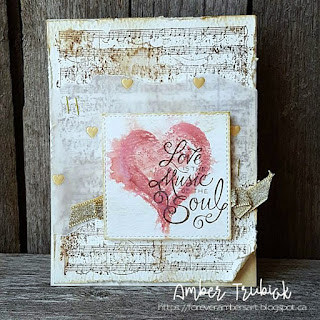 Love
IS THE
Music
OF THE
Soul
Amber Trubiak
https://foreverambersart.blogspot.ca